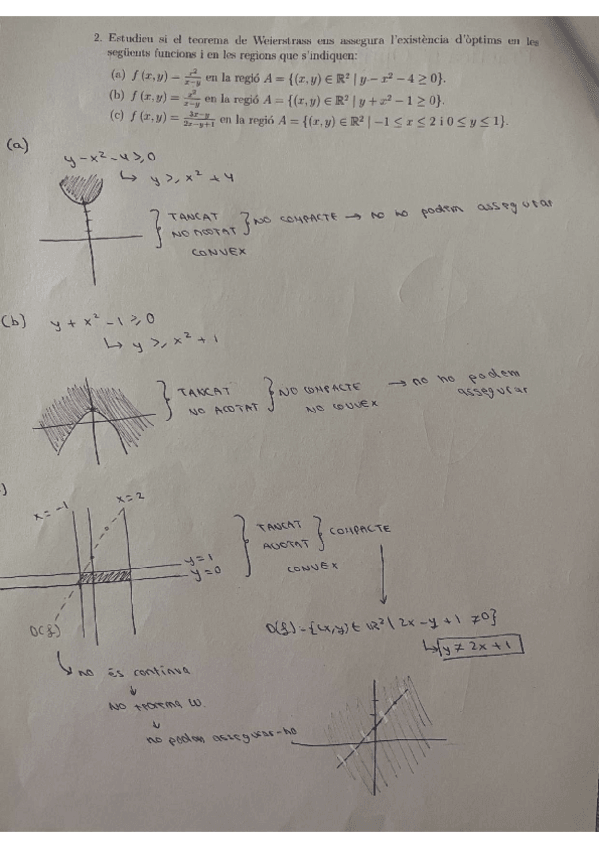 2. Estudieu si el teorema de Weierstrass ens assegura l'existència d'òptims en les
següents funcions i en les regions que s'indiquen:
(a) f (x, y) = x²/(x−y) en la regió A = {(x, y) ∈ ℝ² | y − x² − 4 ≥ 0}.
(b) f (x, y) = x²/(x−y) en la regió A = {(x, y) ∈ ℝ² | y + x² − 1 ≥ 0}.
(c) f (x, y) = en la regió A = {(x, y) ∈ ℝ² | −1 ≤ x ≤ 2 i 0 ≤ y ≤ 1}.
(a)
y − x² − 4 ≥ 0
↳ y ≥ x² + 4
TANCAT
NO ACOTAT
NO COMPACTE → no ho podem assegurar
CONVEX
(b) y + x² − 1 ≥ 0
↳ y ≥ x² + 1
TANCAT
NO ACOTAT
NO COMPACTE → no ho podem
assegurar
NO CONVEX
)
x = −1
x = 2
y = 1
y = 0
D(f)
TANCAT
ACOTAT
COMPACTE
CONVEX
D(f) = {(x,y) ∈ ℝ² | 2x − y + 1 ≠ 0}
↳ y ≠ 2x + 1
↳ no és contínua
↓
NO teorema W.
↓
no podem assegurar-ho